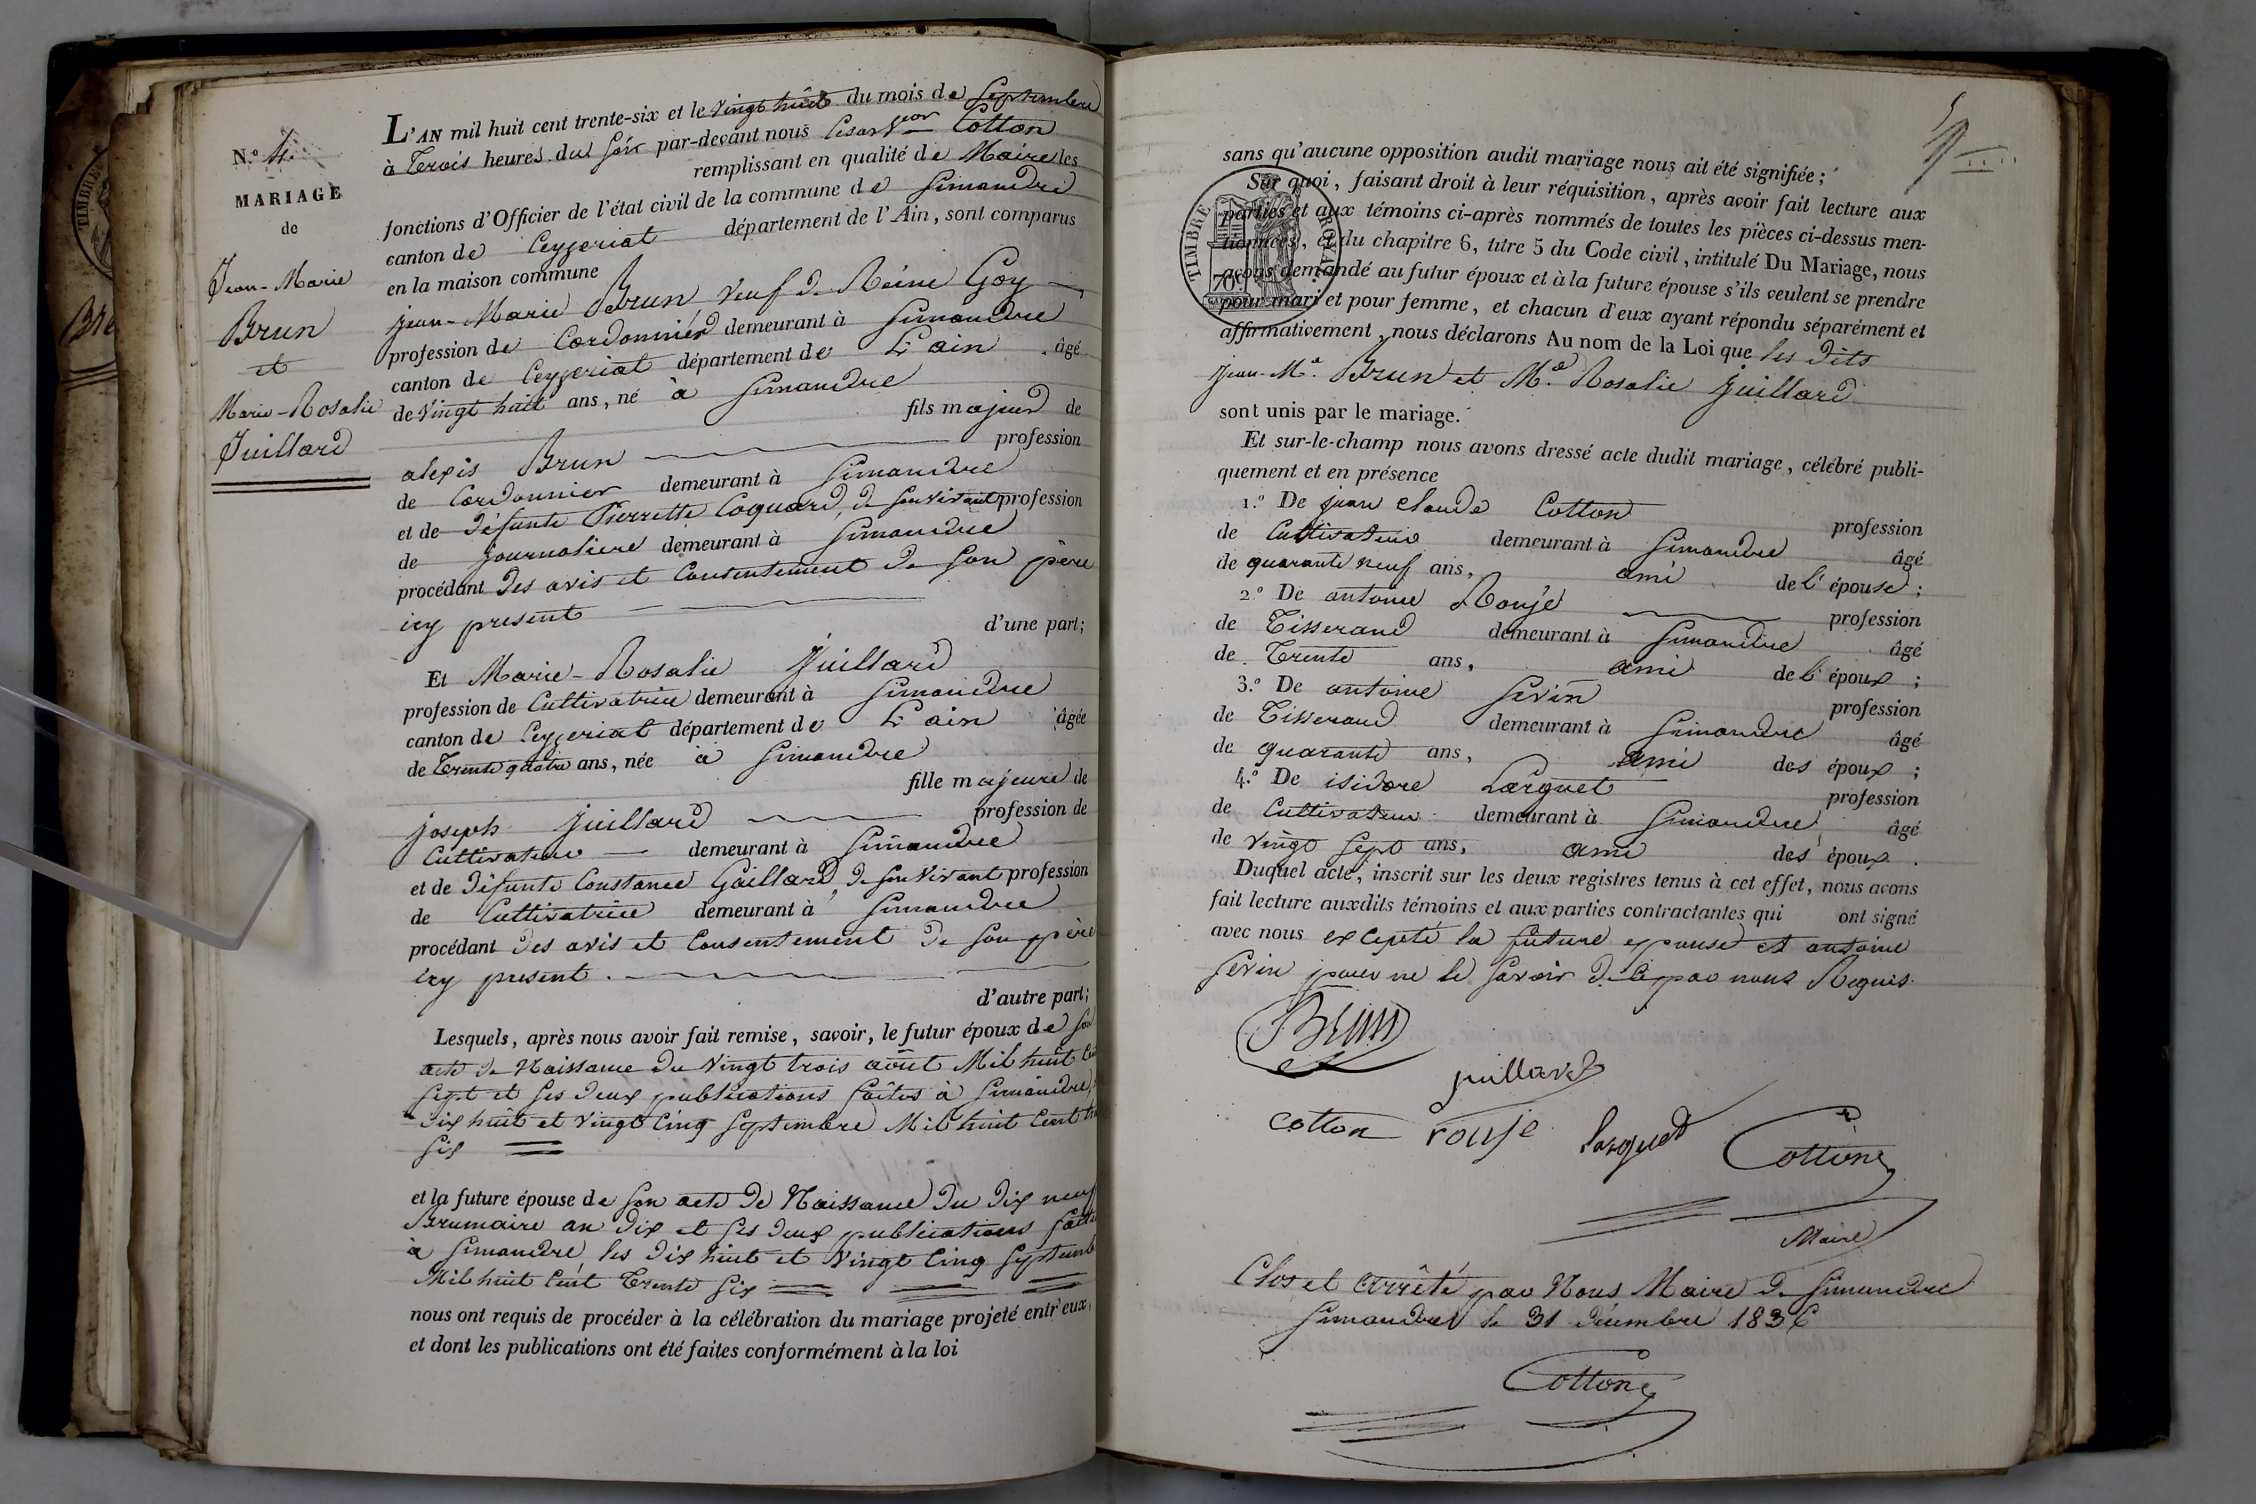 N.º 4.
MARIAGE
de
Jean-Marie
Brun
et
Marie-Rosalie
Juillard
L'AN mil huit cent trente-six et le vingt huit du mois de Septembre
à Trois heures du soir par-devant nous Cesar Cotton
remplissant en qualité de Maire les
fonctions d'Officier de l'état civil de la commune de Simandre
canton de Ceyzeriat département de l'Ain, sont comparus
en la maison commune
jean-Marie Brun veuf de Reine Goy
profession de Cordonnier demeurant à Simandre
canton de Ceyzeriat département de L'ain âgé
de vingt huit ans, né à Simandre
fils majeur de
alexis Brun profession
de Cordonnier demeurant à Simandre
et de défunte Pierrette Coquard, de son vivant profession
de journaliere demeurant à Simandre
procédant des avis et Consentement de son père
icy present
d'une part;
Et Marie-Rosalie Juillard
profession de Cultivatrice demeurant à Simandre
canton de Ceyzeriat département de L'ain âgée
de Trente quatre ans, née à Simandre
fille majeure de
joseph juillard profession de
Cultivateur demeurant à Simandre
et de défunte Constance Gaillard, de son vivant profession
de Cultivatrice demeurant à Simandre
procédant des avis et Consentement de son père
icy present.
d'autre part;
Lesquels, après nous avoir fait remise, savoir, le futur époux de son
acte de Naissance du vingt trois août Mil huit
sept et ses deux publications faites à Simandre,
dix huit et vingt cinq Septembre Mil huit Cent
six
et la future épouse de son acte de Naissance du dix neuf
Brumaire an dix et ses deux publications
à Simandre les dix huit et vingt cinq
Mil huit Cent Trente Six
nous ont requis de procéder à la célébration du mariage projeté entr'eux,
et dont les publications ont été faites conformément à la loi
TIMBRE ROYAL
sans qu'aucune opposition audit mariage nous ait été signifiée;
Sur quoi, faisant droit à leur réquisition, après avoir fait lecture aux
parties et aux témoins ci-après nommés de toutes les pièces ci-dessus men-
tionnées, et du chapitre 6, titre 5 du Code civil, intitulé Du Mariage, nous
avons demandé au futur époux et à la future épouse s'ils veulent se prendre
pour mari et pour femme, et chacun d'eux ayant répondu séparément et
affirmativement, nous déclarons Au nom de la Loi que les dits
Jean-Mie. Brun et Mie. Rosalie Juillard
sont unis par le mariage.
Et sur-le-champ nous avons dressé acte dudit mariage, célébré publi-
quement et en présence
1.º De jean claude Cotton profession
de Cultivateur demeurant à Simandre âgé
de quarante neuf ans, ami de l'épouse;
2.º De antoine Rouje profession
de Tisserand demeurant à Simandre âgé
de Trente ans, ami de l'époux;
3.º De antoine Sevin profession
de Tisserand demeurant à Simandre âgé
de quarante ans, ami des époux;
4.º De isidore Larguet profession
de Cultivateur demeurant à Simandre âgé
de vingt sept ans, ami des époux.
Duquel acte, inscrit sur les deux registres tenus à cet effet, nous avons
fait lecture auxdits témoins et aux parties contractantes qui ont signé
avec nous excepté la future epouse et antoine
Sevin pour ne le savoir de ce par nous Requis.
Brun
juillard
cotton rouje larguet Cotton
Maire
Clos et arrêté par Nous Maire de Simandre
Simandre le 31 décembre 1836
Cotton